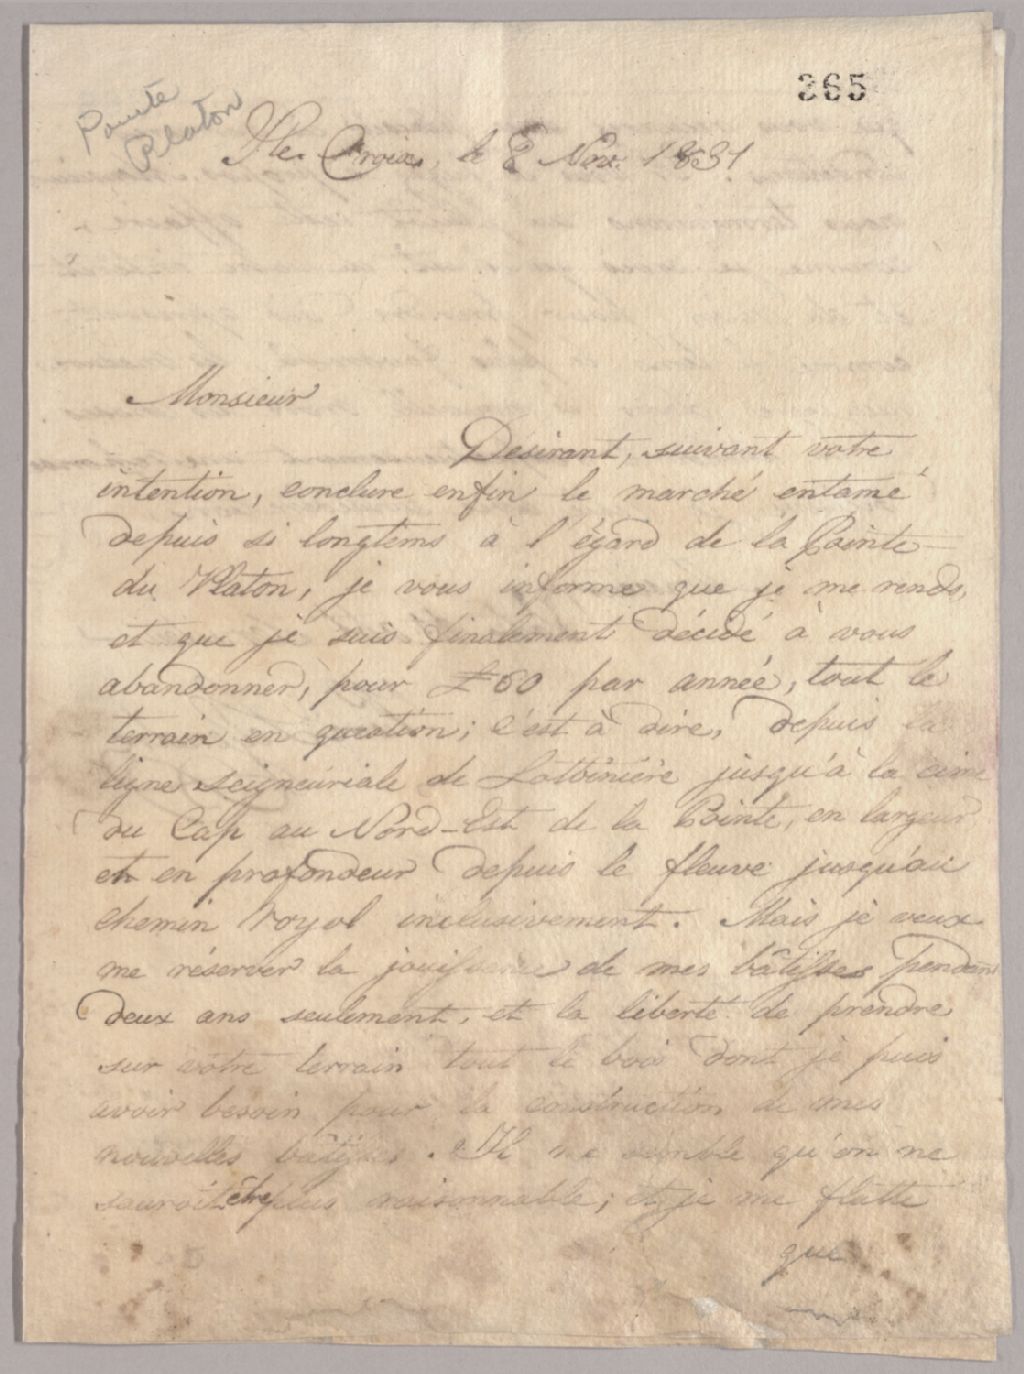 365
Pointe
Platon
Ste. Croix, le 8 Nov. 1831
Monsieur
Desirant, suivant votre
intention, conclure enfin le marché entamé
depuis si longtems à l'égard de la Pointe
du Platon, je vous informe que je me rends,
et que je suis finalement décidé à vous
abandonner, pour £60 par année, tout le
terrain en question; c'est à dire, depuis la
ligne seigneuriale de Lotbinière jusqu'à la cime
du Cap au Nord-Est de la Pointe, en largeur
et en profondeur depuis le fleuve jusqu'au
chemin royal inclusivement. Mais je veux
me réserver la jouissance de mes bâtisses pendant
deux ans seulement, et la liberté de prendre
sur votre terrain tout le bois dont je puis
avoir besoin pour la construction de mes
nouvelles bâtisses. Il me semble qu'on ne
sauroit être plus raisonnable; et je me flatte
que